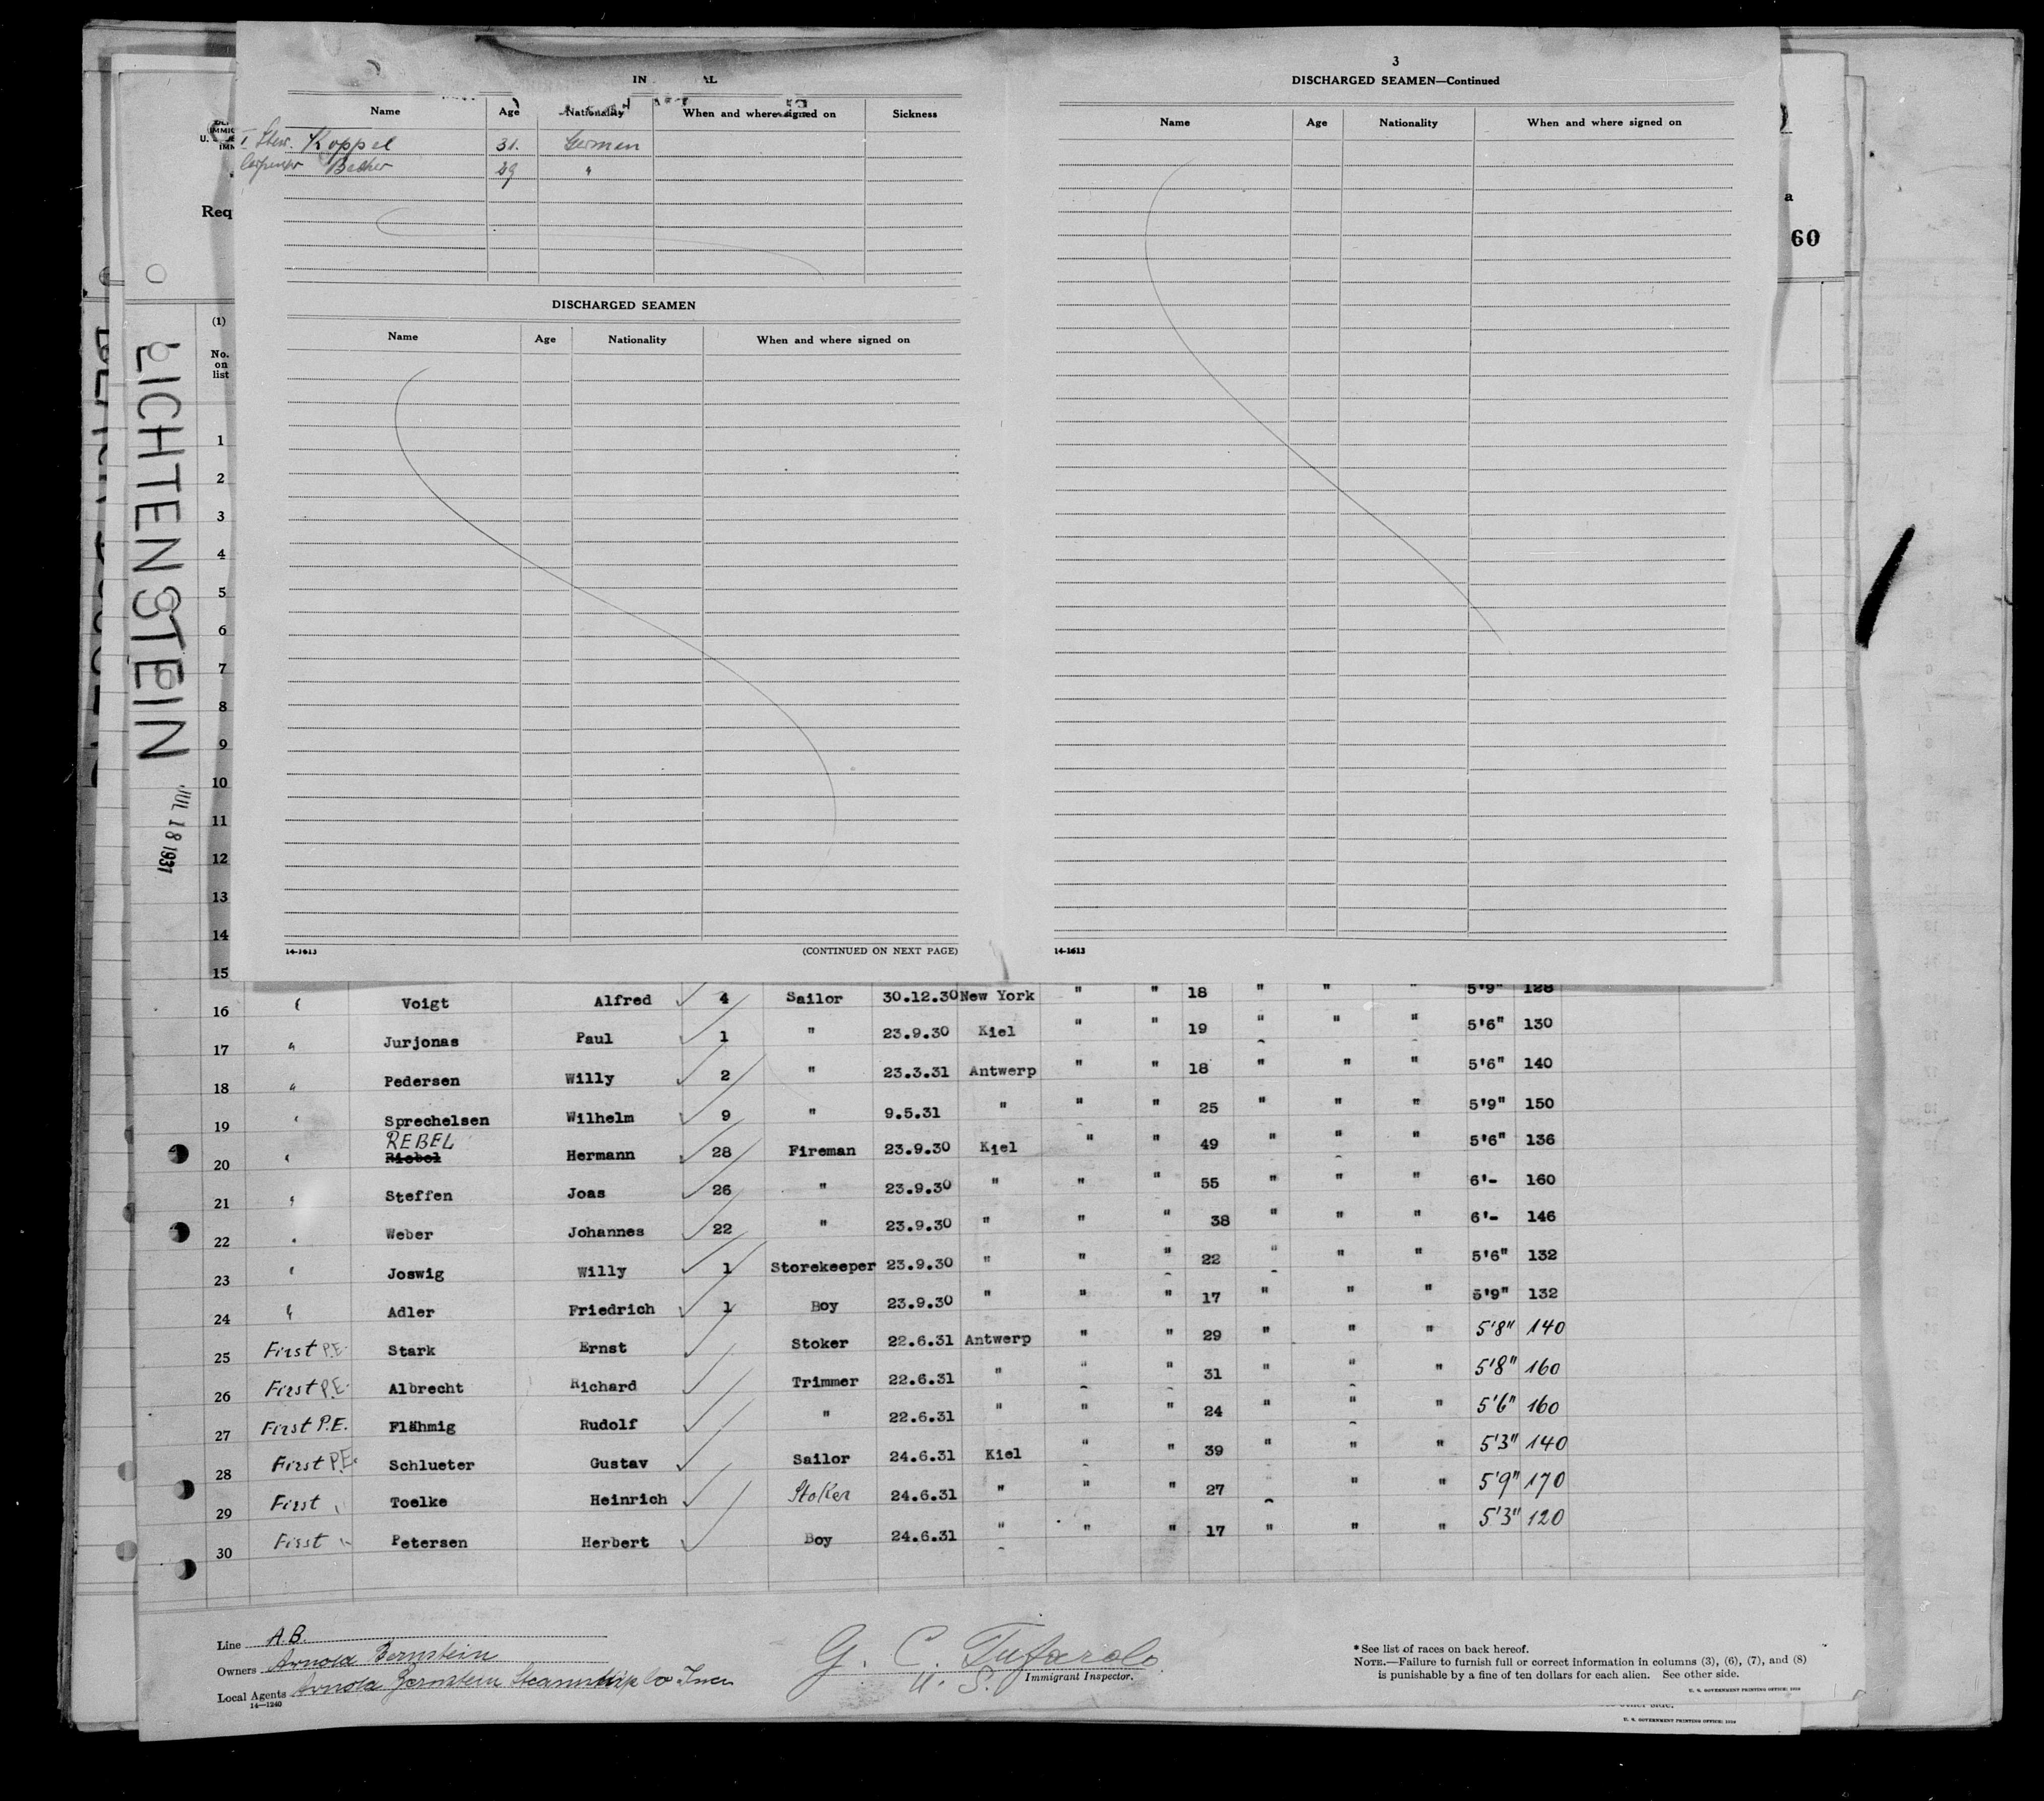 IN AL
Name Age Nationality When and where signed on Sickness
I Stew. Koppel 31. German
Carpenter Becker 29 "
DISCHARGED SEAMEN
Name Age Nationality When and where signed on
14-1613 (CONTINUED ON NEXT PAGE)
3
DISCHARGED SEAMEN—Continued
Name Age Nationality When and where signed on
14-1613
Req
a
60
LICHTENSTEIN
JUL 18 1931
(1)
No.
on
list
1
2
3
4
5
6
7
8
9
10
11
12
13
14
15
16 " Voigt Alfred 4 Sailor 30.12.30 New York " " 18 " " " 5'9" 128
17 " Jurjonas Paul 1 " 23.9.30 Kiel " " 19 " " " 5'6" 130
18 " Pedersen Willy 2 " 23.3.31 Antwerp " " 18 " " " 5'6" 140
19 " Sprechelsen Wilhelm 9 " 9.5.31 " " " 25 " " " 5'9" 150
REBEL
20 " Riebel Hermann 28 Fireman 23.9.30 Kiel " " 49 " " " 5'6" 136
21 " Steffen Joas 26 " 23.9.30 " " " 55 " " " 6'- 160
22 " Weber Johannes 22 " 23.9.30 " " " 38 " " " 6'- 146
23 " Joswig Willy 1 Storekeeper 23.9.30 " " " 22 " " " 5'6" 132
24 " Adler Friedrich 1 Boy 23.9.30 " " " 17 " " " 5'9" 132
25 First P.E. Stark Ernst Stoker 22.6.31 Antwerp " " 29 " " " 5'8" 140
26 First P.E. Albrecht Richard Trimmer 22.6.31 " " " 31 " " " 5'8" 160
27 First P.E. Flähmig Rudolf " 22.6.31 " " " 24 " " " 5'6" 160
28 First P.E. Schlueter Gustav Sailor 24.6.31 Kiel " " 39 " " " 5'3" 140
29 First " Toelke Heinrich Stoker 24.6.31 " " " 27 " " " 5'9" 170
30 First " Petersen Herbert Boy 24.6.31 " " " 17 " " " 5'3" 120
Line A.B.
Owners Arnold Bernstein
Local Agents Arnold Bernstein Steamship Co Inc
14—1240
G. C. Tufarolo
U. S. Immigrant Inspector.
*See list of races on back hereof.
NOTE.—Failure to furnish full or correct information in columns (3), (6), (7), and (8)
is punishable by a fine of ten dollars for each alien. See other side.
U. S. GOVERNMENT PRINTING OFFICE: 1930
other side.
U. S. GOVERNMENT PRINTING OFFICE: 1930